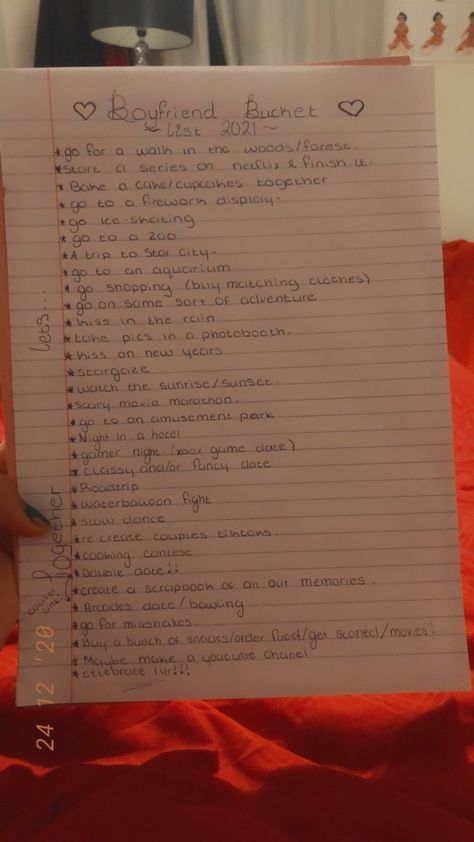 ♡ Boyfriend Bucket ♡
~ List 2021 ~
*go for a walk in the woods/forest.
*Start a series on netflix & finish it.
* Bake a cake/cupcakes together
* go to a firework display.
* go ice-skating
* go to a zoo
*A trip to Star City.
* go to an aquarium
* go shopping (buy matching clothes)
* go on some sort of adventure
* kiss in the rain
*take pics in a photobooth.
* kiss on new years
*stargaze
*watch the sunrise/sunset.
*scary movie marathon.
*go to an amusement park.
*Night in a hotel
*gamer night. (xbox game date)
* classy and/or fancy date
*Roadtrip
*waterballoon fight
*slow dance
*re-create couples tiktoks.
*cooking contest
*Double date!!
*create a scrapbook of all our memories.
*Arcades date/bowling
*go for milkshakes.
*buy a bunch of snacks/order food/get stoned/movies!
*Maybe make a youtube chanel
*celebrate 1yr!!!
lets...
Together
24 12 '20